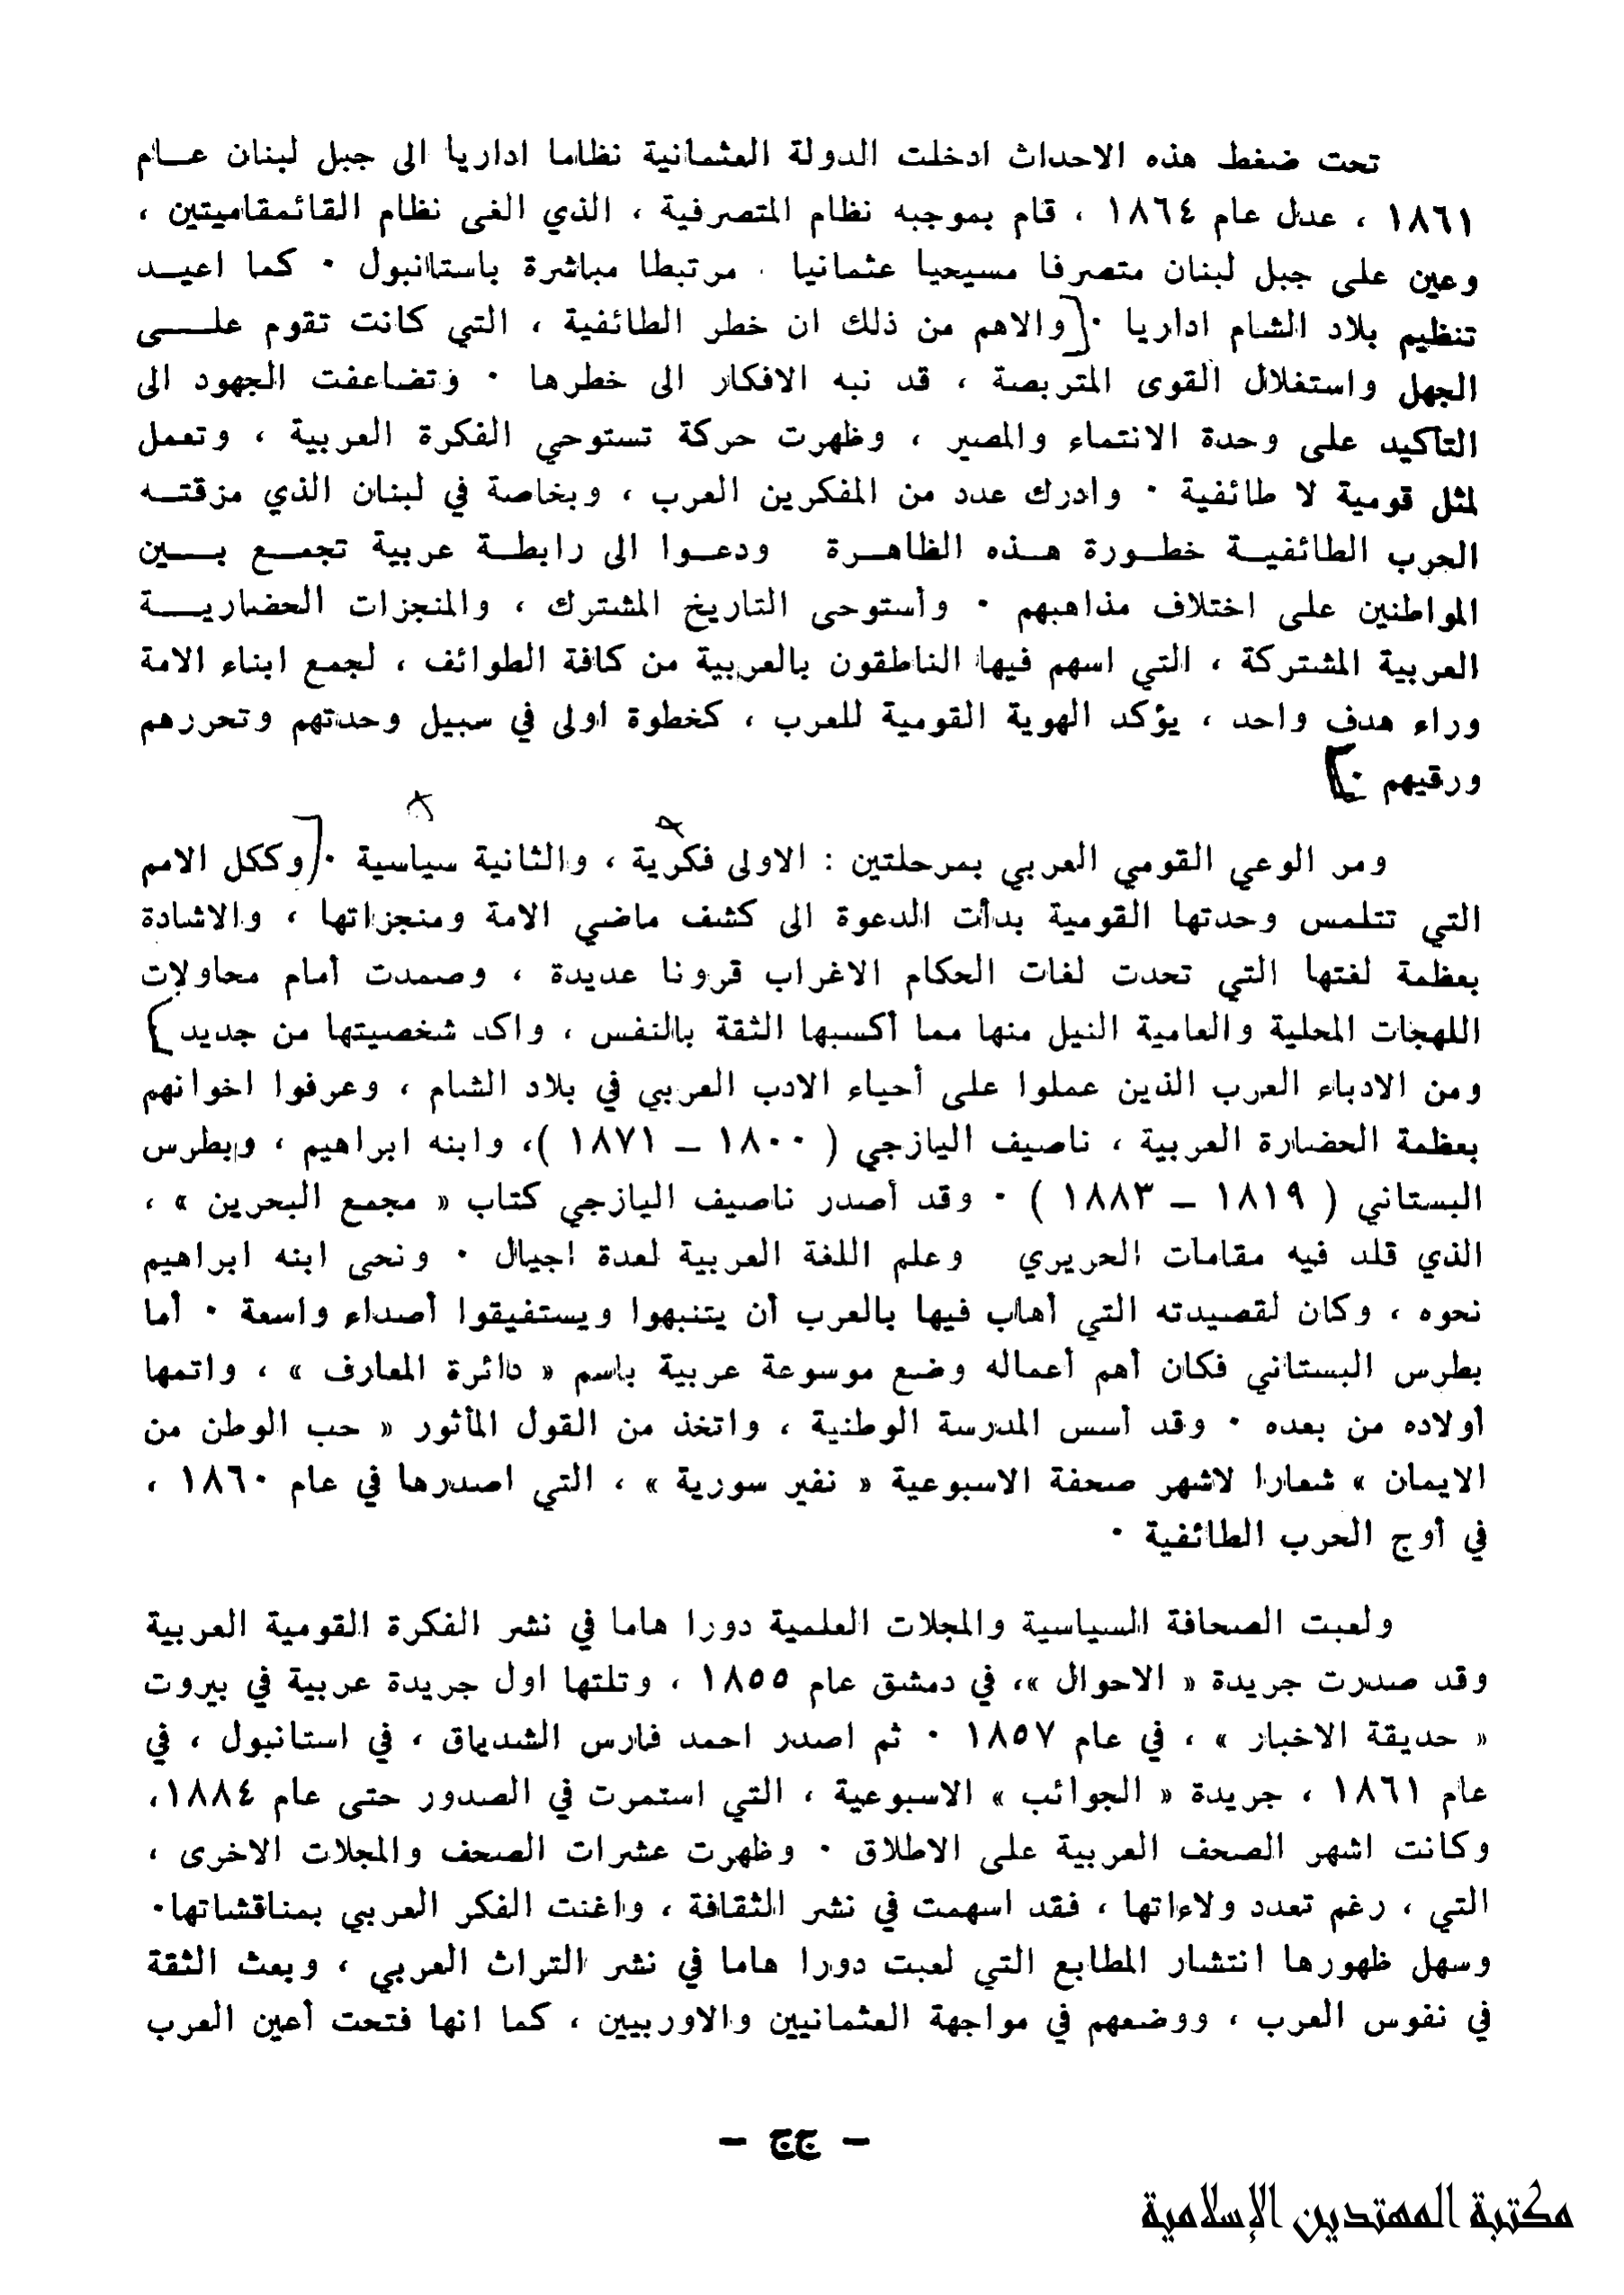 تحت ضغط هذه الاحداث ادخلت الدولة العثمانية نظاما اداريا الى جبل لبنان عــام
١٨٦١ ، عدل عام ١٨٦٤ ، قام بموجبه نظام المتصرفية ، الذي الغى نظام القائمقاميتين ،
وعين على جبل لبنان متصرفا مسيحيا عثمانيا . مرتبطا مباشرة باستانبول ٠ كما اعيــد
تنظيم بلاد الشام اداريا ٠[والاهم من ذلك ان خطر الطائفية ، التي كانت تقوم علــى
الجهل واستغلال القوى المتربصة ، قد نبه الافكار الى خطرها ٠ وتضاعفت الجهود الى
التأكيد على وحدة الانتماء والمصير ، وظهرت حركة تستوحي الفكرة العربية ، وتعمل
لمثل قومية لا طائفية ٠ وادرك عدد من المفكرين العرب ، وبخاصة في لبنان الذي مزقتــه
الحرب الطائفيــة خطــورة هــذه الظاهــرة ودعــوا الى رابطــة عربية تجمــع بــين
المواطنين على اختلاف مذاهبهم ٠ وأستوحى التاريخ المشترك ، والمنجزات الحضاريــة
العربية المشتركة ، التي اسهم فيها الناطقون بالعربية من كافة الطوائف ، لجمع ابناء الامة
وراء هدف واحد ، يؤكد الهوية القومية للعرب ، كخطوة اولى في سبيل وحدتهم وتحررهم
ورقيهم ٠]
ومر الوعي القومي العربي بمرحلتين : الاولى فكرية ، والثانية سياسية ٠[وككل الامم
التي تتلمس وحدتها القومية بدأت الدعوة الى كشف ماضي الامة ومنجزاتها ، والاشادة
بعظمة لغتها التي تحدت لغات الحكام الاغراب قرونا عديدة ، وصمدت أمام محاولات
اللهجات المحلية والعامية النيل منها مما أكسبها الثقة بالنفس ، واكد شخصيتها من جديد ]
ومن الادباء العرب الذين عملوا على أحياء الادب العربي في بلاد الشام ، وعرفوا اخوانهم
بعظمة الحضارة العربية ، ناصيف اليازجي ( ١٨٠٠ – ١٨٧١ )، وابنه ابراهيم ، وبطرس
البستاني ( ١٨١٩ – ١٨٨٣ ) ٠ وقد أصدر ناصيف اليازجي كتاب « مجمع البحرين » ،
الذي قلد فيه مقامات الحريري وعلم اللغة العربية لعدة اجيال ٠ ونحى ابنه ابراهيم
نحوه ، وكان لقصيدته التي أهاب فيها بالعرب أن يتنبهوا ويستفيقوا أصداء واسعة ٠ أما
بطرس البستاني فكان أهم أعماله وضع موسوعة عربية باسم « دائرة المعارف » ، واتمها
أولاده من بعده ٠ وقد أسس المدرسة الوطنية ، واتخذ من القول المأثور « حب الوطن من
الايمان » شعارا لاشهر صحفة الاسبوعية « نفير سورية » ، التي اصدرها في عام ١٨٦٠ ،
في أوج الحرب الطائفية ٠
ولعبت الصحافة السياسية والمجلات العلمية دورا هاما في نشر الفكرة القومية العربية
وقد صدرت جريدة « الاحوال »، في دمشق عام ١٨٥٥ ، وتلتها اول جريدة عربية في بيروت
« حديقة الاخبار » ، في عام ١٨٥٧ ٠ ثم اصدر احمد فارس الشدياق ، في استانبول ، في
عام ١٨٦١ ، جريدة « الجوائب » الاسبوعية ، التي استمرت في الصدور حتى عام ١٨٨٤،
وكانت اشهر الصحف العربية على الاطلاق ٠ وظهرت عشرات الصحف والمجلات الاخرى ،
التي ، رغم تعدد ولاءاتها ، فقد اسهمت في نشر الثقافة ، واغنت الفكر العربي بمناقشاتها٠
وسهل ظهورها انتشار المطابع التي لعبت دورا هاما في نشر التراث العربي ، وبعث الثقة
في نفوس العرب ، ووضعهم في مواجهة العثمانيين والاوربيين ، كما انها فتحت أعين العرب
– جج –
مكتبة المهتدين الإسلامية